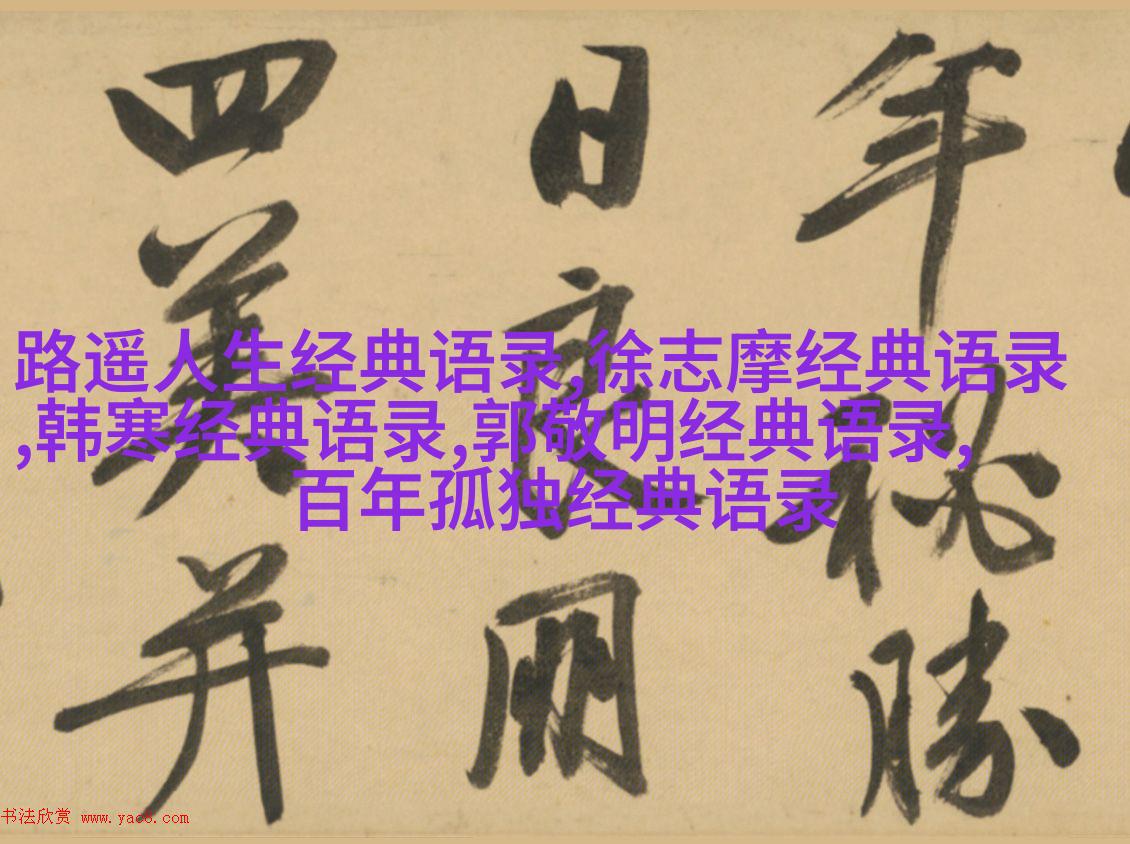 年秘勝
日良朋
四美并
路遥人生经典语录,徐志摩经典语录
,韩寒经典语录,郭敬明经典语录,
百年孤独经典语录
书法欣赏 www.yac8.com